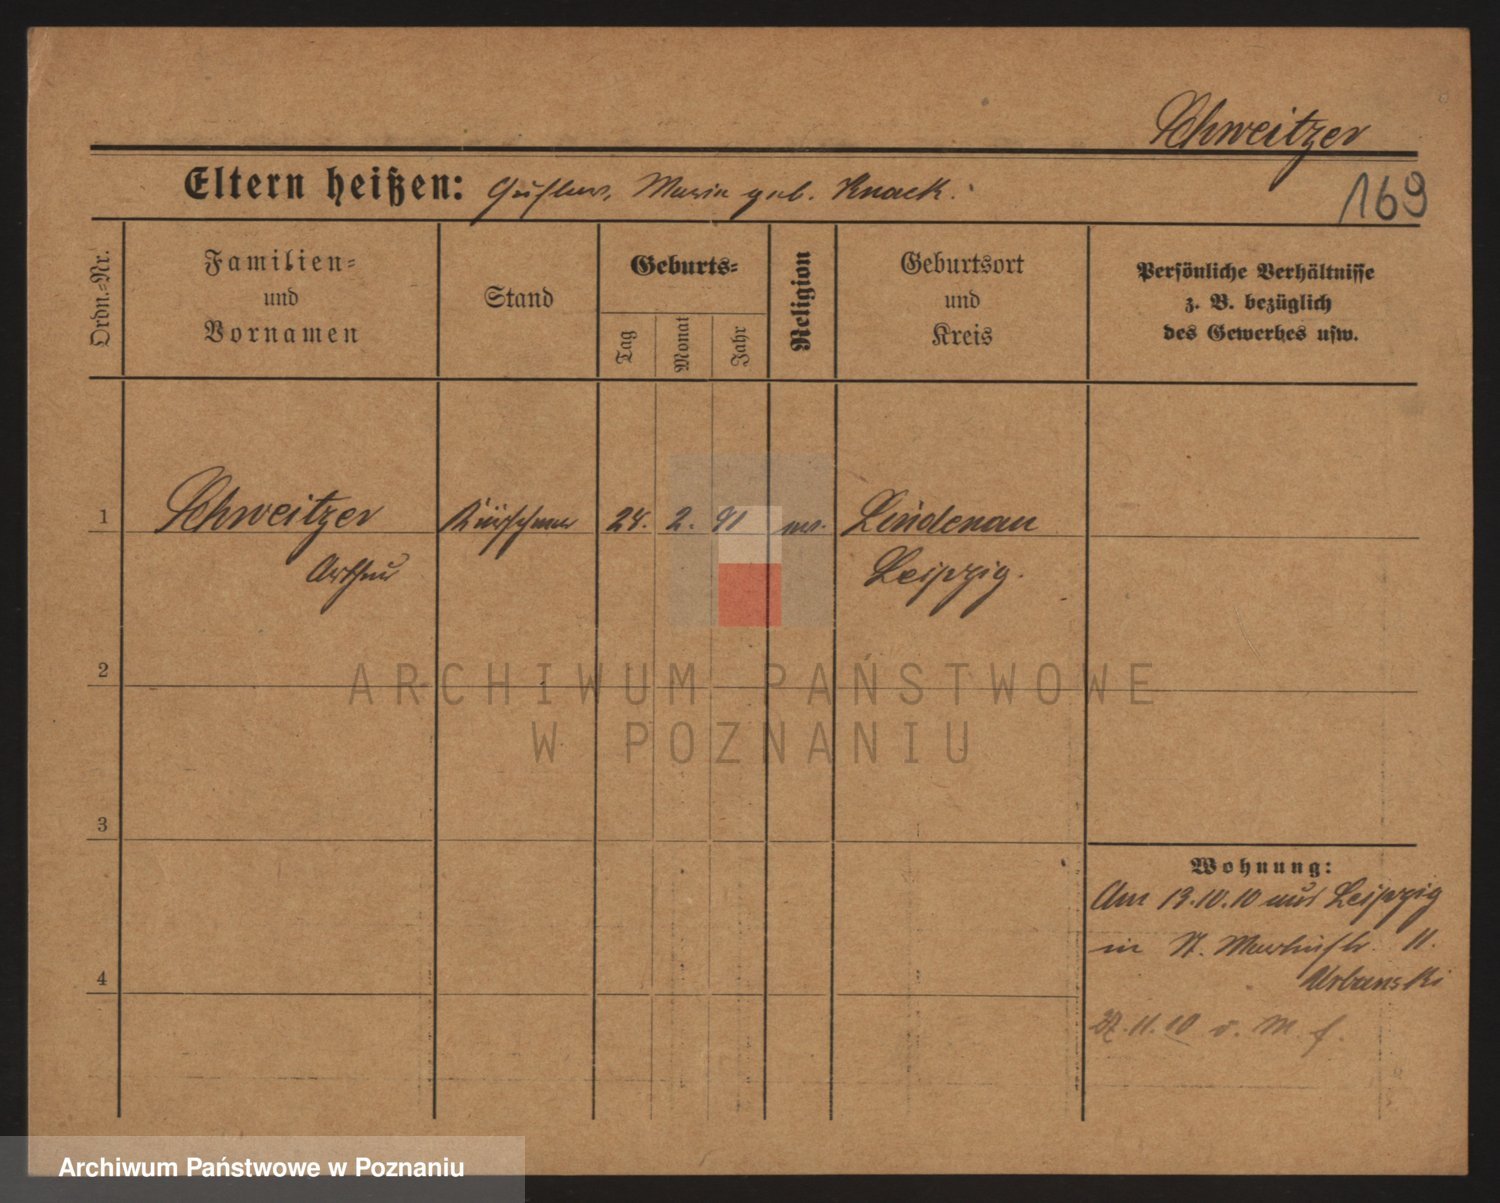 Schweitzer
Eltern heißen: Gustav, Maria geb. Knack.
169
Ordn.-Nr.
Familien-
und
Vornamen
Stand
Geburts-
Tag
Monat
Jahr
Religion
Geburtsort
und
Kreis
Persönliche Verhältnisse
z. B. bezüglich
des Gewerbes usw.
1 Schweitzer Kürschner 24. 2. 91 Lindenau
Arthur Leipzig.
2
3
4
Wohnung:
Am 13.10.10 aus Leipzig
in St. Martinstr. 11.
Urbanski
27.11.10 v. M.
ARCHIWUM PAŃSTWOWE
W POZNANIU
Archiwum Państwowe w Poznaniu